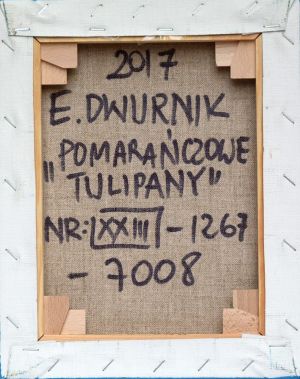 2017
E. DWURNIK
„POMARAŃCZOWE
TULIPANY”
NR: XXIII - 1267
- 7008